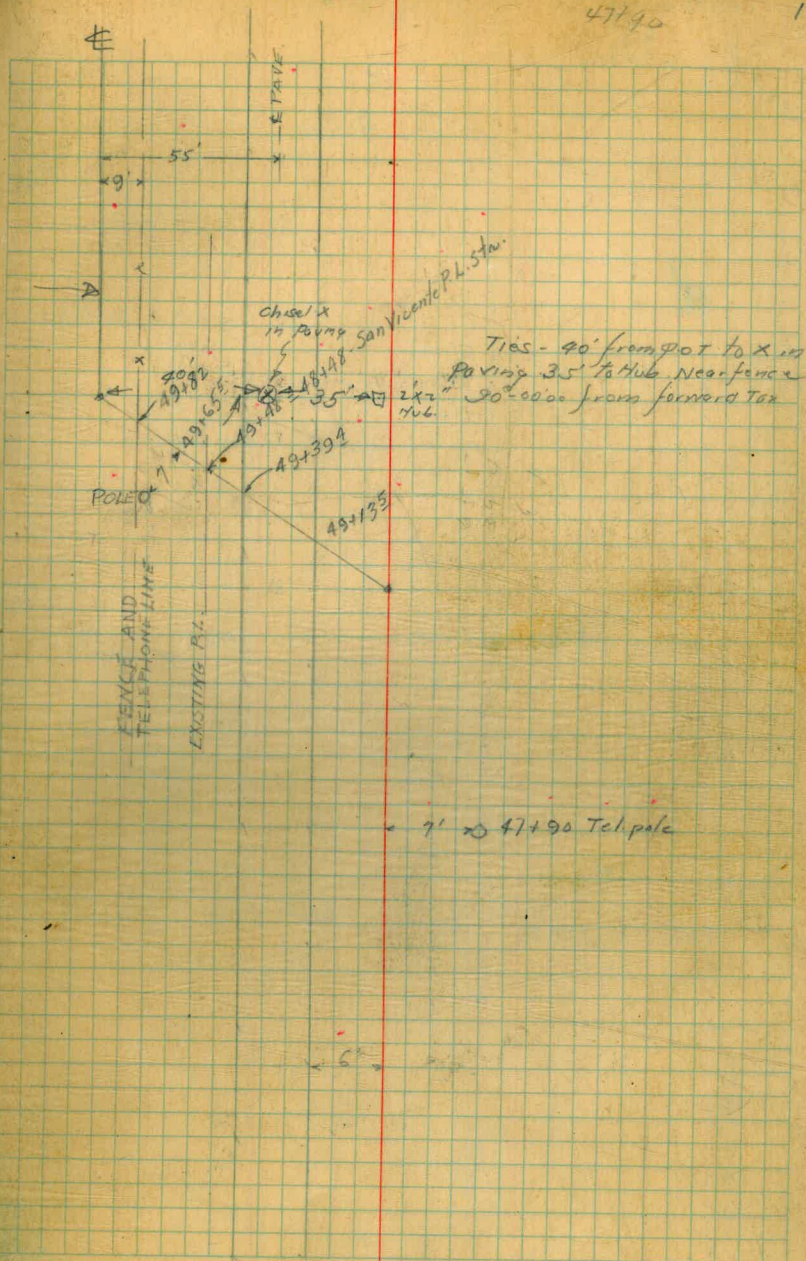 47+90
1
℄
℄ PAVE.
55'
9'
Chisel X
in Paving
48+48 San Vicente P.L. Sta.
Ties - 40' from POT to X in
Paving 35' to Hub Near fence
90°-00 from forward Tan
40'
35'
2"x2"
Hub.
49+82
49+65⁵
49+48
49+39⁴
49+13⁵
POLE
7
FENCE AND
TELEPHONE LINE
EXISTING P.L.
7' 47+90 Tel. pole
6'